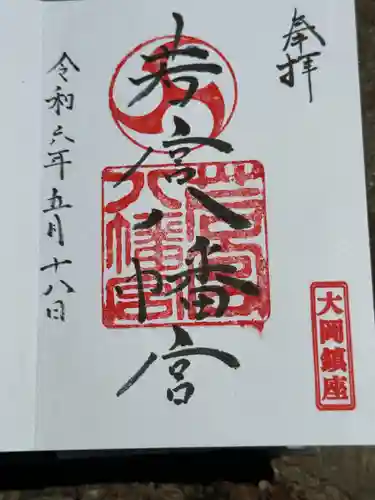 奉拝
大岡鎮座
若宮八幡宮
若宮八幡宮
令和六年五月十八日